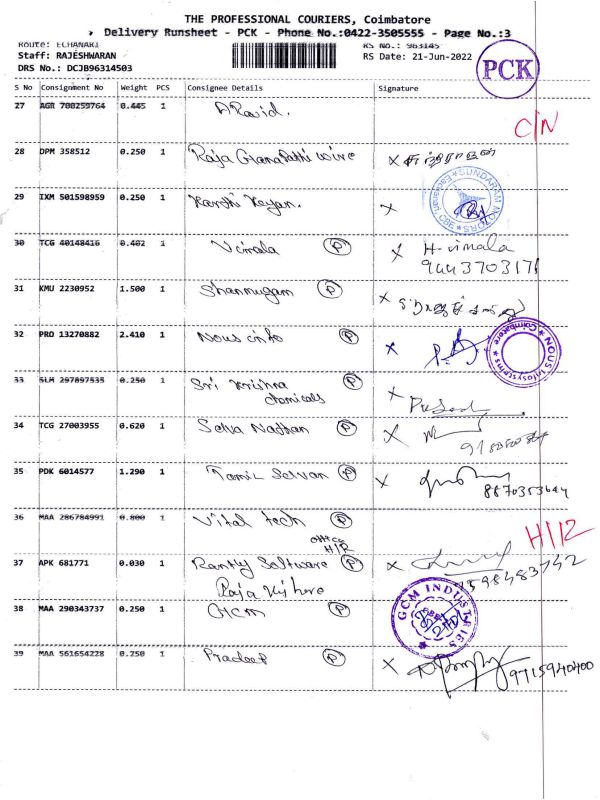 THE PROFESSIONAL COURIERS, Coimbatore
Delivery Runsheet - PCK - Phone No.:0422-3505555 - Page No.:3
Route: ECHANARI RS No.: 963145
Staff: RAJESHWARAN RS Date: 21-Jun-2022
DRS No.: DCJB96314503
PCK
S No Consignment No Weight PCS Consignee Details Signature
27 AGR 700259764 0.445 1
C/N
28 DPM 358512 0.250 1 Raja
29 IXM 501598959 0.250 1
SUNDARAM MOTORS
30 TCG 40148416 0.402 1 Vimala P H. vimala
9443703171
31 KMU 2230952 1.500 1 Shanmugam P
32 PRO 13270882 2.410 1 Nous info P
NOUS Infosystems Coimbatore
33 SLM 297897535 0.250 1 Sri Krishna P
chemicals
34 TCG 27003955 0.620 1 Selva Nathan P
35 PDK 6014577 1.290 1 Tamil Selvan P
8870353644
36 MAA 286784991 0.800 1 Vital tech P
office
H/R
H/R
37 APK 681771 0.030 1 Software P
Raja Kishore
9598483742
38 MAA 290343737 0.250 1 GCM P
GCM INDUSTRIES
39 MAA 561654228 0.250 1 Pradeep P
9715940400